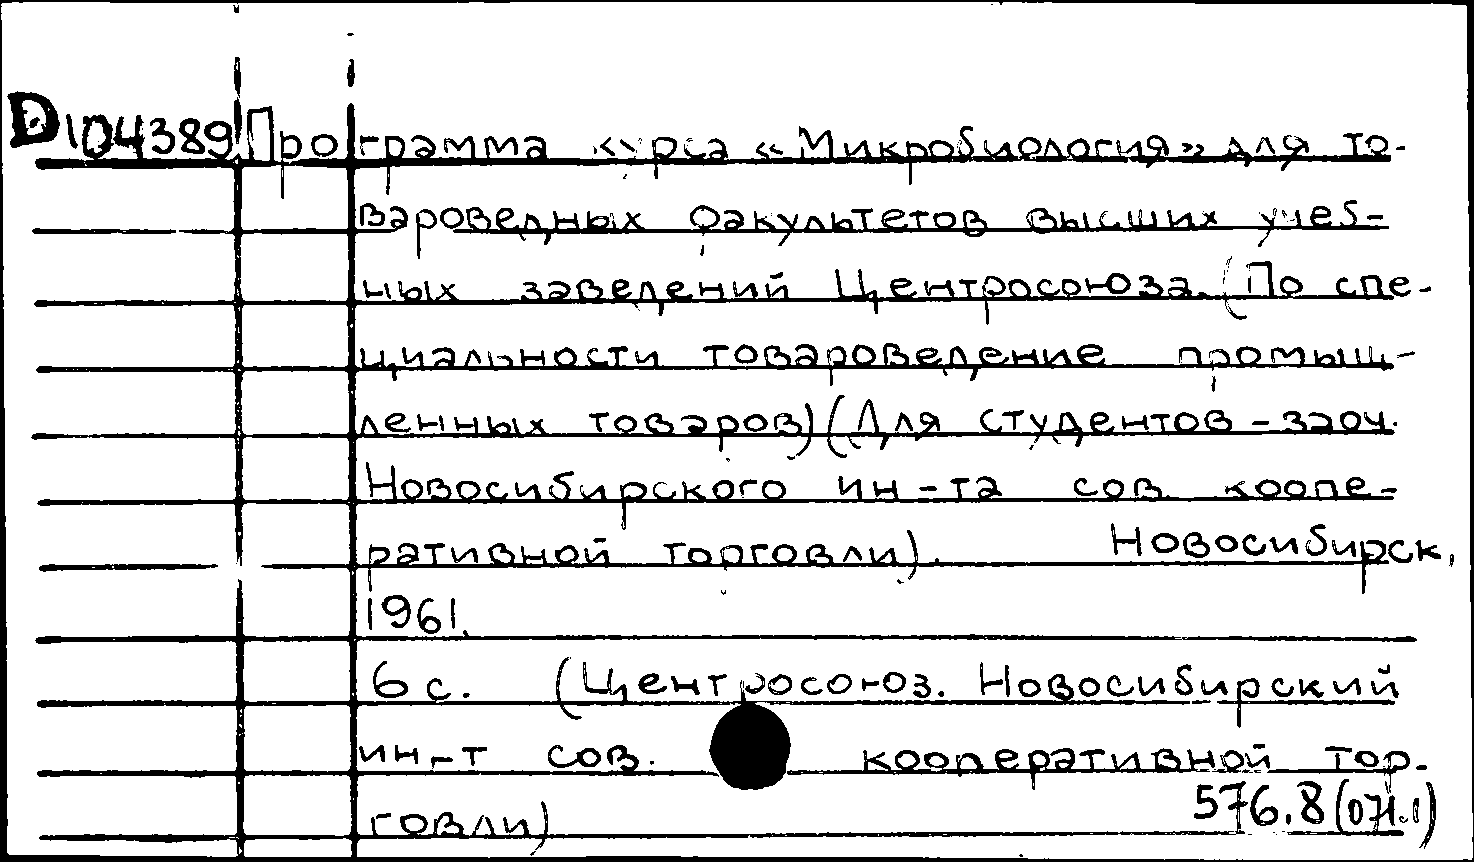 D104389 Программа курса «Микробиология» для то-
вароведных факультетов высших учеб-
ных заведений Центросоюза. (По спе-
циальности товароведение промыш-
ленных товаров) (Для студентов-заоч.
Новосибирского ин-та сов. коопе-
ративной торговли). Новосибирск,
1961.
6 с. (Центросоюз. Новосибирский
ин-т сов. кооперативной тор-
говли)
576.8(071.1)